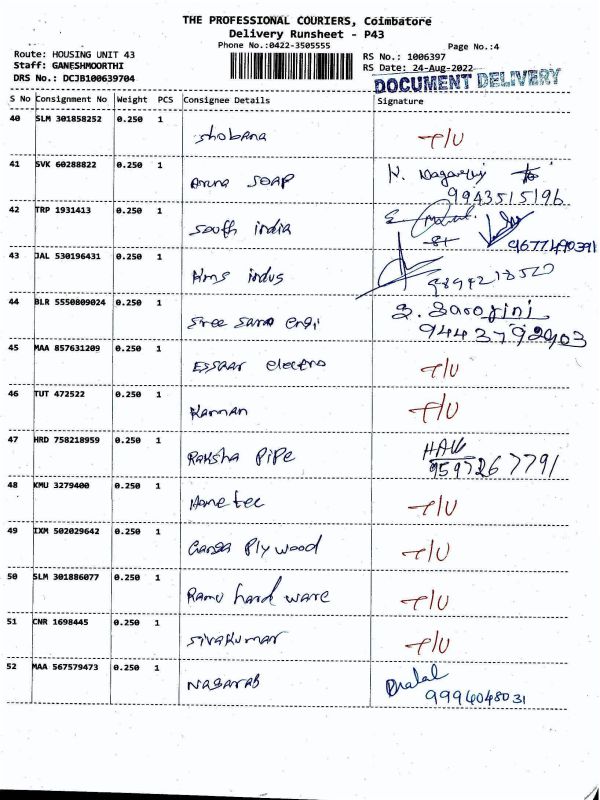 THE PROFESSIONAL COURIERS, Coimbatore
Delivery Runsheet - P43
Phone No.:0422-3505555
Page No.:4
Route: HOUSING UNIT 43
RS No.: 1006397
Staff: GANESHMOORTHI
RS Date: 24-Aug-2022
DRS No.: DCJB100639704
DOCUMENT DELIVERY
S No Consignment No Weight PCS Consignee Details Signature
40 SLM 301858252 0.250 1 Shobana T/U
41 SVK 60288822 0.250 1 Aruna SOAP N. Nagaraj
9943515196
42 TRP 1931413 0.250 1 South india
9677490391
43 JAL 530196431 0.250 1 Kms indus
9894218520
44 BLR 5550809024 0.250 1 Sree Sara engi S. Sarojini
9443792903
45 MAA 857631209 0.250 1 ESSaar electro T/U
46 TUT 472522 0.250 1 Kannan T/U
47 HRD 758218959 0.250 1 Raksha Pipe
9597267791
48 KMU 3279400 0.250 1 Hometec T/U
49 IXM 502029642 0.250 1 Ganga Plywood T/U
50 SLM 301886077 0.250 1 Ramu hard ware T/U
51 CNR 1698445 0.250 1 Sivakumar T/U
52 MAA 567579473 0.250 1
9994048031